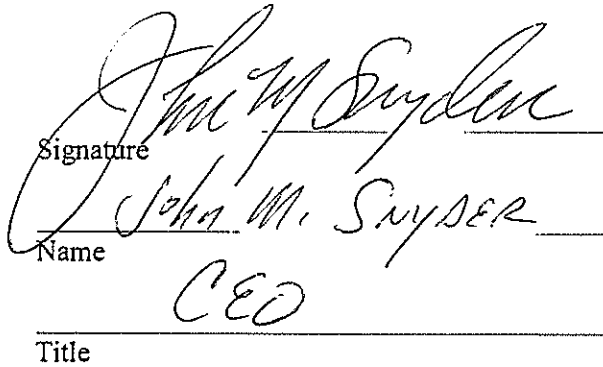 John M Snyder
Signature
John M. SNYDER
Name
CEO
Title